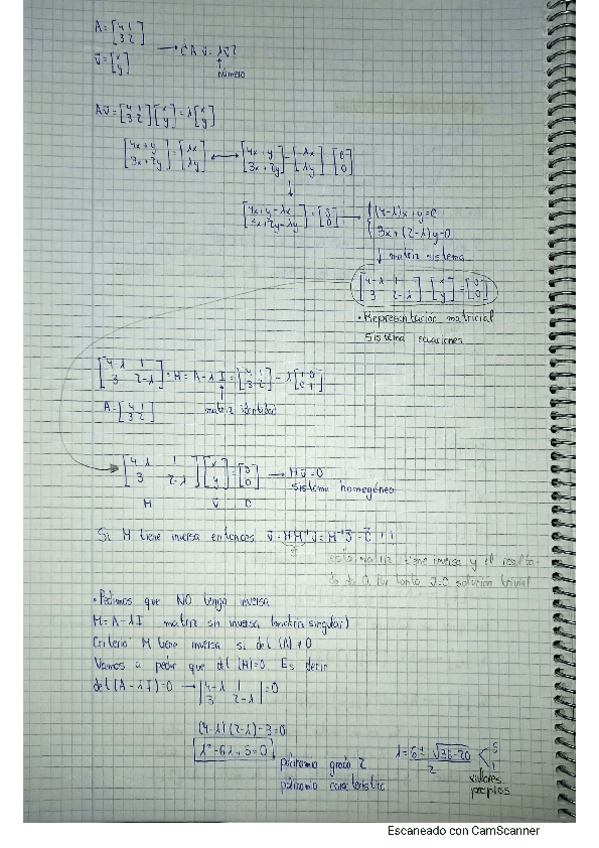 A = [4 1; 3 2]
→ ¿A v̄ = λv̄?
v̄ = [x; y]
número
Av̄ = [4 1; 3 2] [x; y] = λ [x; y]
[4x+y; 3x+2y] = [λx; λy] ↔ [4x+y; 3x+2y] - [λx; λy] = [0; 0]
↓
[4x+y-λx; 3x+2y-λy] = [0; 0] → { (4-λ)x+y=0
3x+(2-λ)y=0
↓ matriz sistema
[4-λ 1; 3 2-λ] · [x; y] = [0; 0]
• Representación matricial
sistema ecuaciones
[4-λ 1; 3 2-λ] = M = A - λ I = [4 1; 3 2] - λ [1 0; 0 1]
A = [4 1; 3 2] matriz identidad
[4-λ 1; 3 2-λ] [x; y] = [0; 0] → Mv̄ = 0
sistema homogéneo
M v̄ 0
Si M tiene inversa entonces
esta matriz tiene inversa y el
solución trivial
• Pedimos que NO tenga inversa
M = A - λI matriz sin inversa (matriz singular)
Criterio M tiene inversa si det (A) ≠ 0
Vamos a pedir que det (M)=0. Es decir
det (A - λI)=0 → |4-λ 1; 3 2-λ| = 0
(4-λ)(2-λ)-3=0
λ²-6λ+5=0
polinomio grado 2
polinomio característic
λ = 6 ± √36-20 / 2 < 5
1
valores
propios
Escaneado con CamScanner